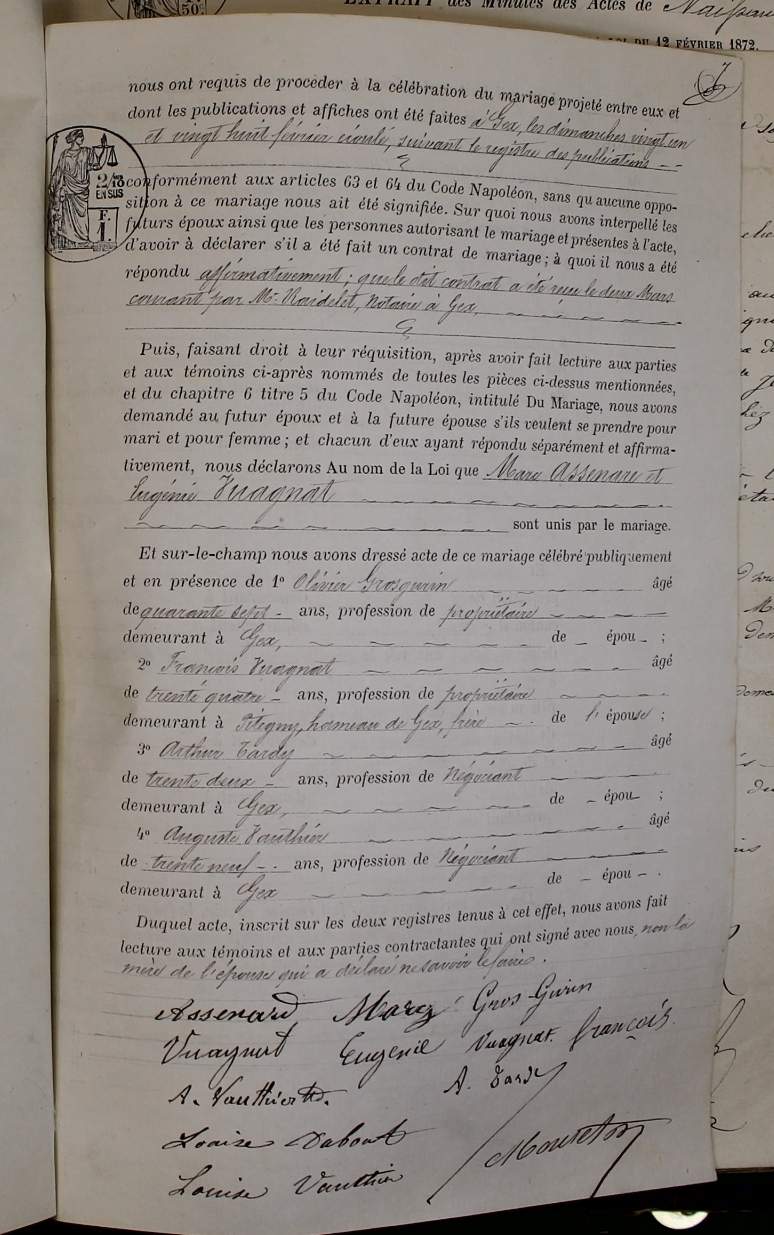 50
EXTRAIT des Minutes des Actes de Naissan
DU 12 FÉVRIER 1872.
nous ont requis de procéder à la célébration du mariage projeté entre eux et
dont les publications et affiches ont été faites à Gex, les dimanches vingt un
et vingt huit février écoulé, suivant le registre des publications
2/10
EN SUS
F.
1
conformément aux articles 63 et 64 du Code Napoléon, sans qu'aucune oppo-
sition à ce mariage nous ait été signifiée. Sur quoi nous avons interpellé les
futurs époux ainsi que les personnes autorisant le mariage et présentes à l'acte,
d'avoir à déclarer s'il a été fait un contrat de mariage ; à quoi il nous a été
répondu affirmativement ; que le dit contrat a été reçu le deux Mars
courant par Mr. Naidelet, Notaire à Gex,
Puis, faisant droit à leur réquisition, après avoir fait lecture aux parties
et aux témoins ci-après nommés de toutes les pièces ci-dessus mentionnées,
et du chapitre 6 titre 5 du Code Napoléon, intitulé Du Mariage, nous avons
demandé au futur époux et à la future épouse s'ils veulent se prendre pour
mari et pour femme ; et chacun d'eux ayant répondu séparément et affirma-
tivement, nous déclarons Au nom de la Loi que Marc Assenare et
Eugénie Vuagnat
sont unis par le mariage.
Et sur-le-champ nous avons dressé acte de ce mariage célébré publiquement
et en présence de 1º Olivier Grosgurin âgé
de quarante sept - ans, profession de propriétaire
demeurant à Gex, de - épou - ;
2º François Vuagnat âgé
de trente quatre - ans, profession de propriétaire
demeurant à Pitegny, hameau de Gex, frère de l'épouse ;
3º Arthur Tardy âgé
de trente deux - ans, profession de Négociant
demeurant à Gex, de - épou - ;
4º Auguste Vauthier âgé
de trente neuf - ans, profession de Négociant
demeurant à Gex de - épou - .
Duquel acte, inscrit sur les deux registres tenus à cet effet, nous avons fait
lecture aux témoins et aux parties contractantes qui ont signé avec nous, non la
mère de l'épouse qui a déclaré ne savoir le faire.
Assenard Marc Gros-Gurin
Vuagnat Eugénie Vuagnat françois
A. Vauthier A. Tardy
Louise Dabout
Louise Vauthier Moureton